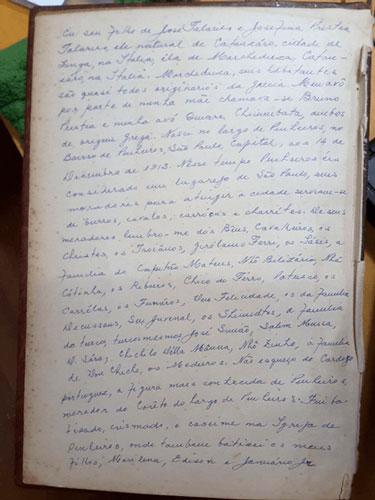 Eu sou filho de José Talarico e Josefina Prestia
Talarico ele natural de Catanzaro, cidade de
na Italia, ela de Marchedusa, Catan-
zaro, na Italia. Marchedusa, seus habitantes
são quasi todos originários da Grécia. Meu avô
por parte de minha mãe chamava-se Bruno
Prestia e minha avó ambos
de origem grega. Nasci no largo de Pinheiros, no
Bairro de Pinheiros, São Paulo, Capital, aos 14 de
Dezembro de 1913. Nesse tempo Pinheiros era
considerado um lugarejo de São Paulo, seus
moradores para atingir a cidade serviam-se
de burros, cavalos, carroças e charretes. De seus
moradores lembro-me dos Bius, Cavalheiros, os
os Troianos, Girólamo Ferri, os a
Familia do Capitão Mateus, Nhô Belizário, Nhá
os Rebuços, Chico do Ferro, os
os Vva Felicidade, os da familia
Seu Juvenal, os Shimidtos, a familia
do turco, José Simão, Salim Mussa,
D. Sára, Chichilo Della Manna, Nhô Zinho, a familia
de Don Chiche, os Medeiros. Não esqueço do Cardozo
portugues, a figura mais conhecida de Pinheiros,
morador do Corêto do largo de Pinheiros. Fui ba-
tisado, crismado, e casei-me na Igreja de
Pinheiros, onde tambem batisei os meus
filhos, Marilena, Edison e Januário Jr